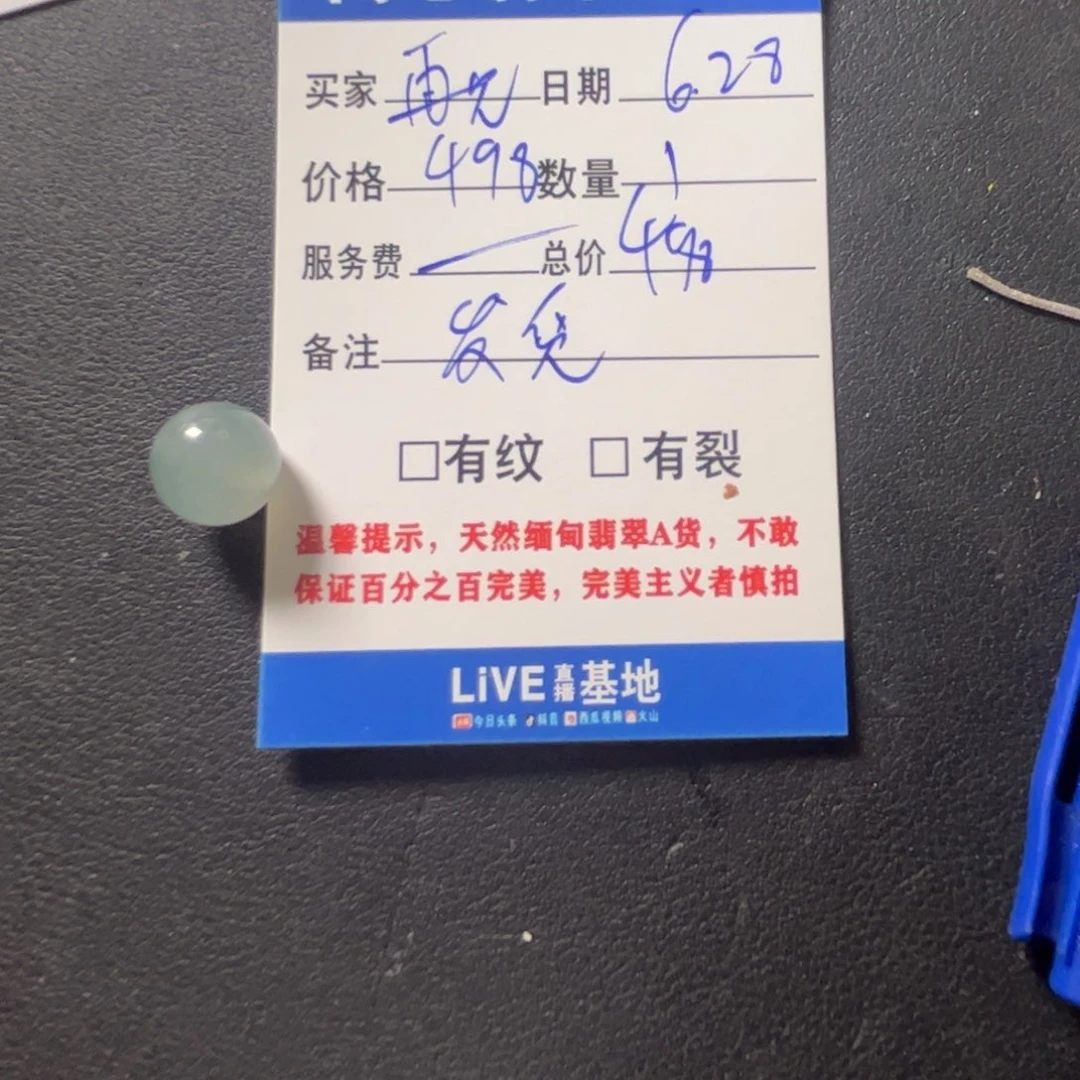 买家 再先 日期 6.28
价格 498 数量 1
服务费 — 总价 498
备注 发货
□有纹 □有裂
温馨提示，天然缅甸翡翠A货，不敢
保证百分之百完美，完美主义者慎拍
LiVE直播基地
今日头条 抖音 西瓜视频 火山